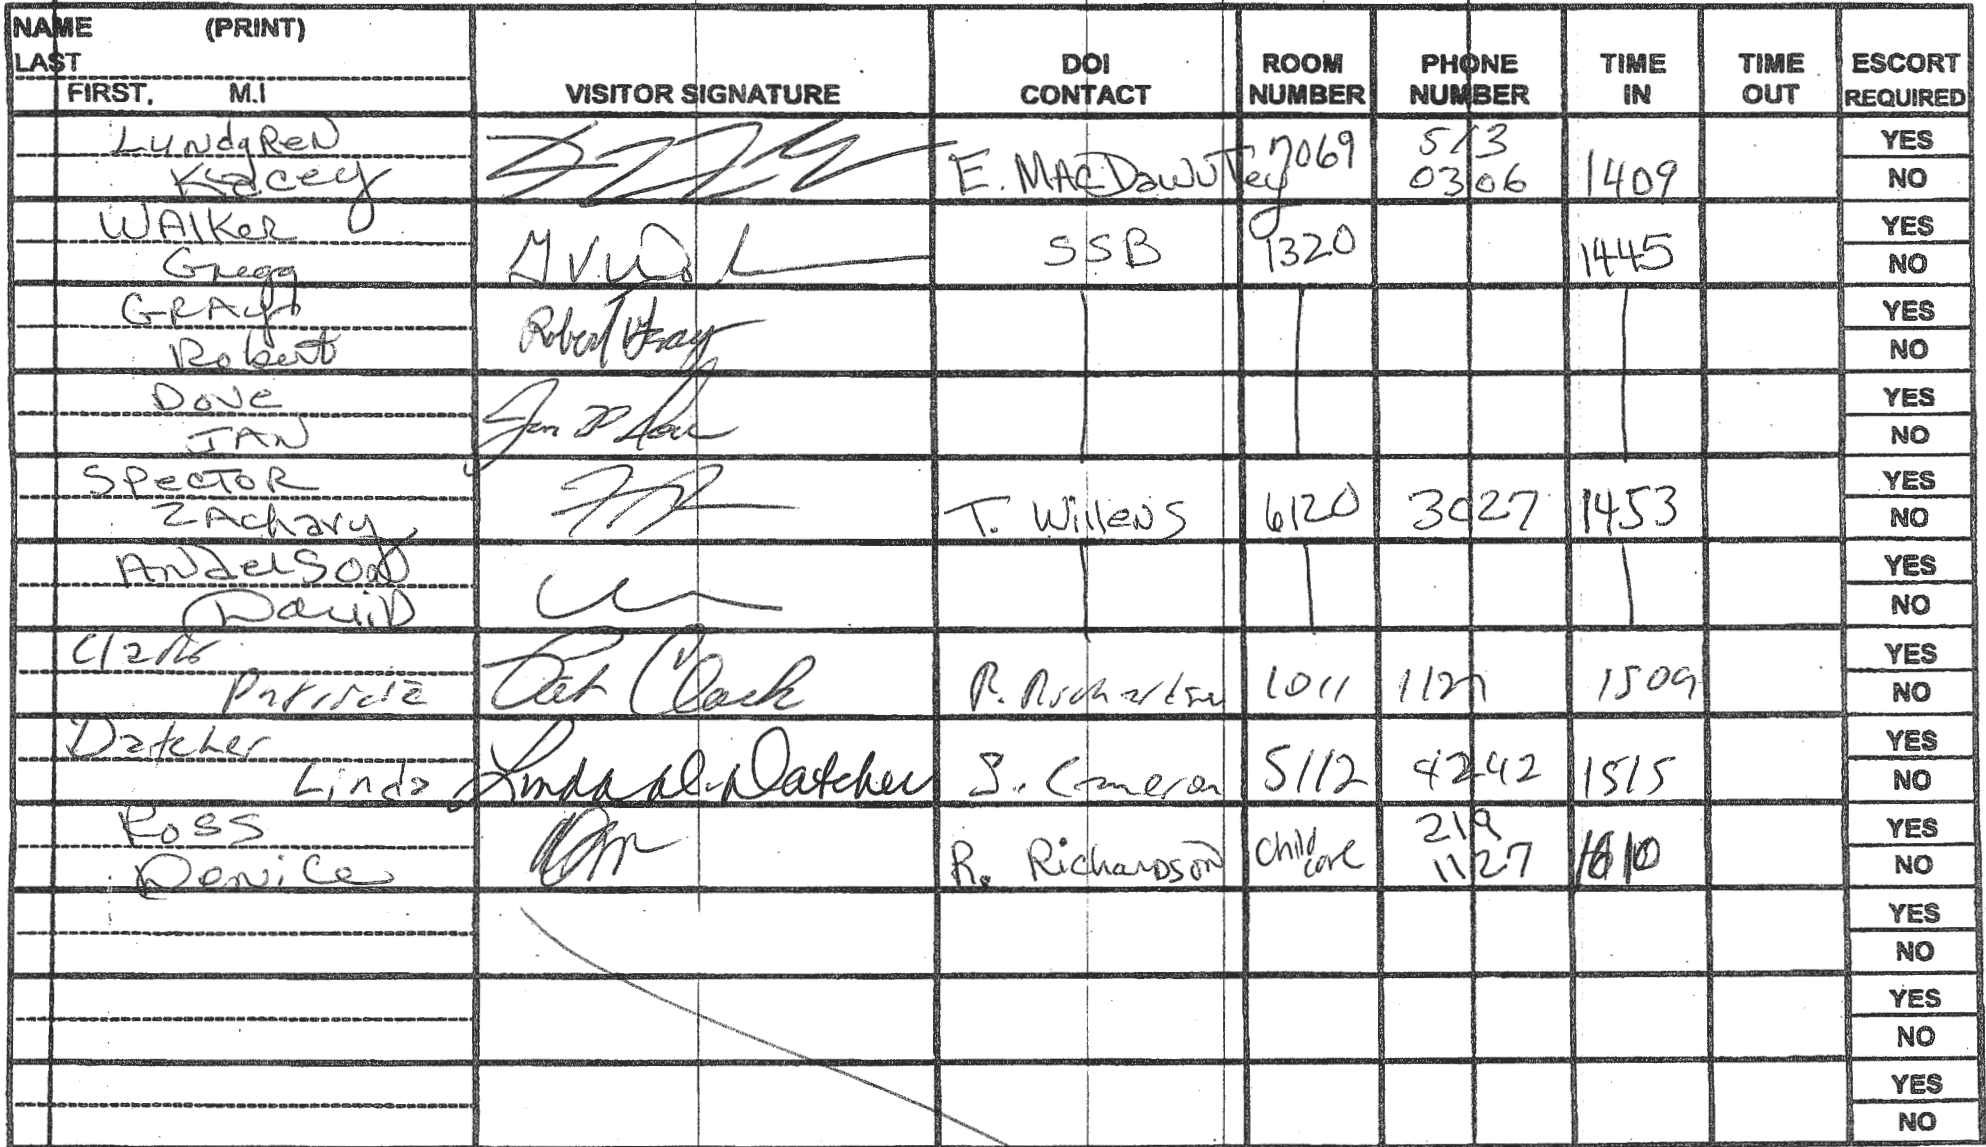 NAME (PRINT)
LAST
FIRST, M.I
VISITOR SIGNATURE
DOI
CONTACT
ROOM
NUMBER
PHONE
NUMBER
TIME
IN
TIME
OUT
ESCORT
REQUIRED
LUNdgReN
Kacey
E.
7069
513
0306
1409
YES
NO
WAlKer
Gregg
SSB
1320
1445
YES
NO
GRAY
Robert
Robert Gray
YES
NO
DOVe
JAN
YES
NO
SPecToR
ZAchary
T. Willens
6120
3027
1453
YES
NO
ANdeRSoN
DaviD
YES
NO
Clark
Patricia
Pat Clark
R. Richardson
1011
1127
1509
YES
NO
Datcher
Linda
Linda D. Datcher
S. Cameron
5112
4242
1515
YES
NO
Ross
Denice
R. Richardson
Child
care
219
1127
1610
YES
NO
YES
NO
YES
NO
YES
NO